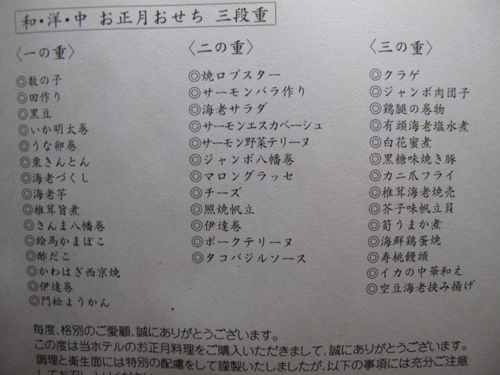 和・洋・中 お正月おせち 三段重
〈一の重〉
◎数の子
◎田作り
◎黒豆
◎いか明太巻
◎うな卵巻
◎栗きんとん
◎海老づくし
◎海老芋
◎椎茸旨煮
◎さんま八幡巻
◎絵馬かまぼこ
◎酢だこ
◎かわはぎ西京焼
◎伊達巻
◎門松ようかん
〈二の重〉
◎焼ロブスター
◎サーモンバラ作り
◎海老サラダ
◎サーモンエスカベーシュ
◎サーモン野菜テリーヌ
◎ジャンボ八幡巻
◎マロングラッセ
◎チーズ
◎照焼帆立
◎伊達巻
◎ポークテリーヌ
◎タコバジルソース
〈三の重〉
◎クラゲ
◎ジャンボ肉団子
◎鶏腿の巻物
◎有頭海老塩水煮
◎白花蜜煮
◎黒糖味焼き豚
◎カニ爪フライ
◎椎茸海老焼売
◎芥子味帆立貝
◎筍うまか煮
◎海鮮鶏蛋焼
◎寿桃饅頭
◎イカの中華和え
◎空豆海老挟み揚げ
毎度、格別のご愛顧、誠にありがとうございます。
この度は当ホテルのお正月料理をご購入いただきまして、誠にありがとうございます。
調理と衛生面には特別の配慮をして謹製いたしましたが、以下の事項には充分ご注意